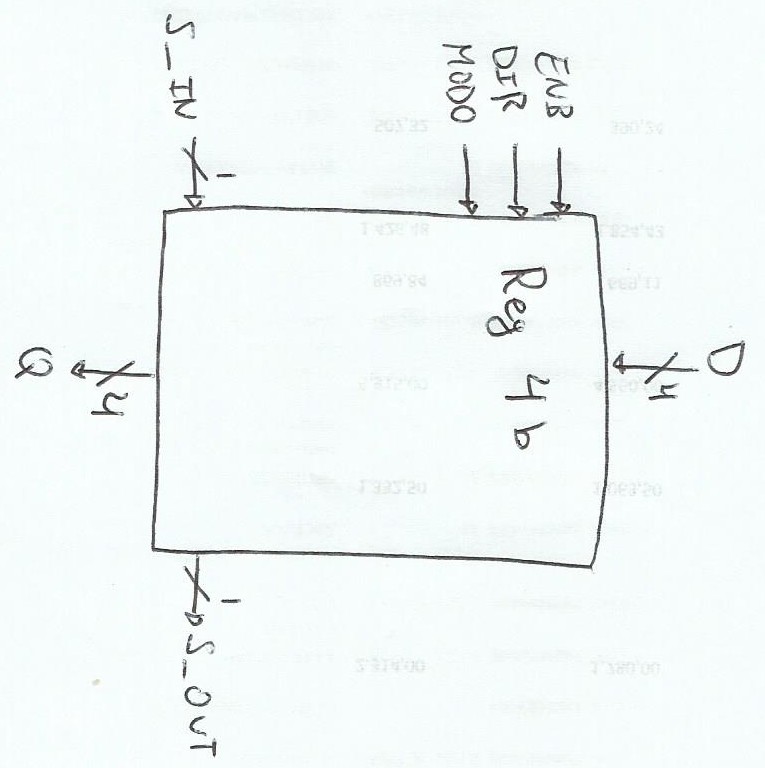 D
4
ENB
DIR
MODO
Reg 4 b
1
S_IN
1
S_OUT
4
Q